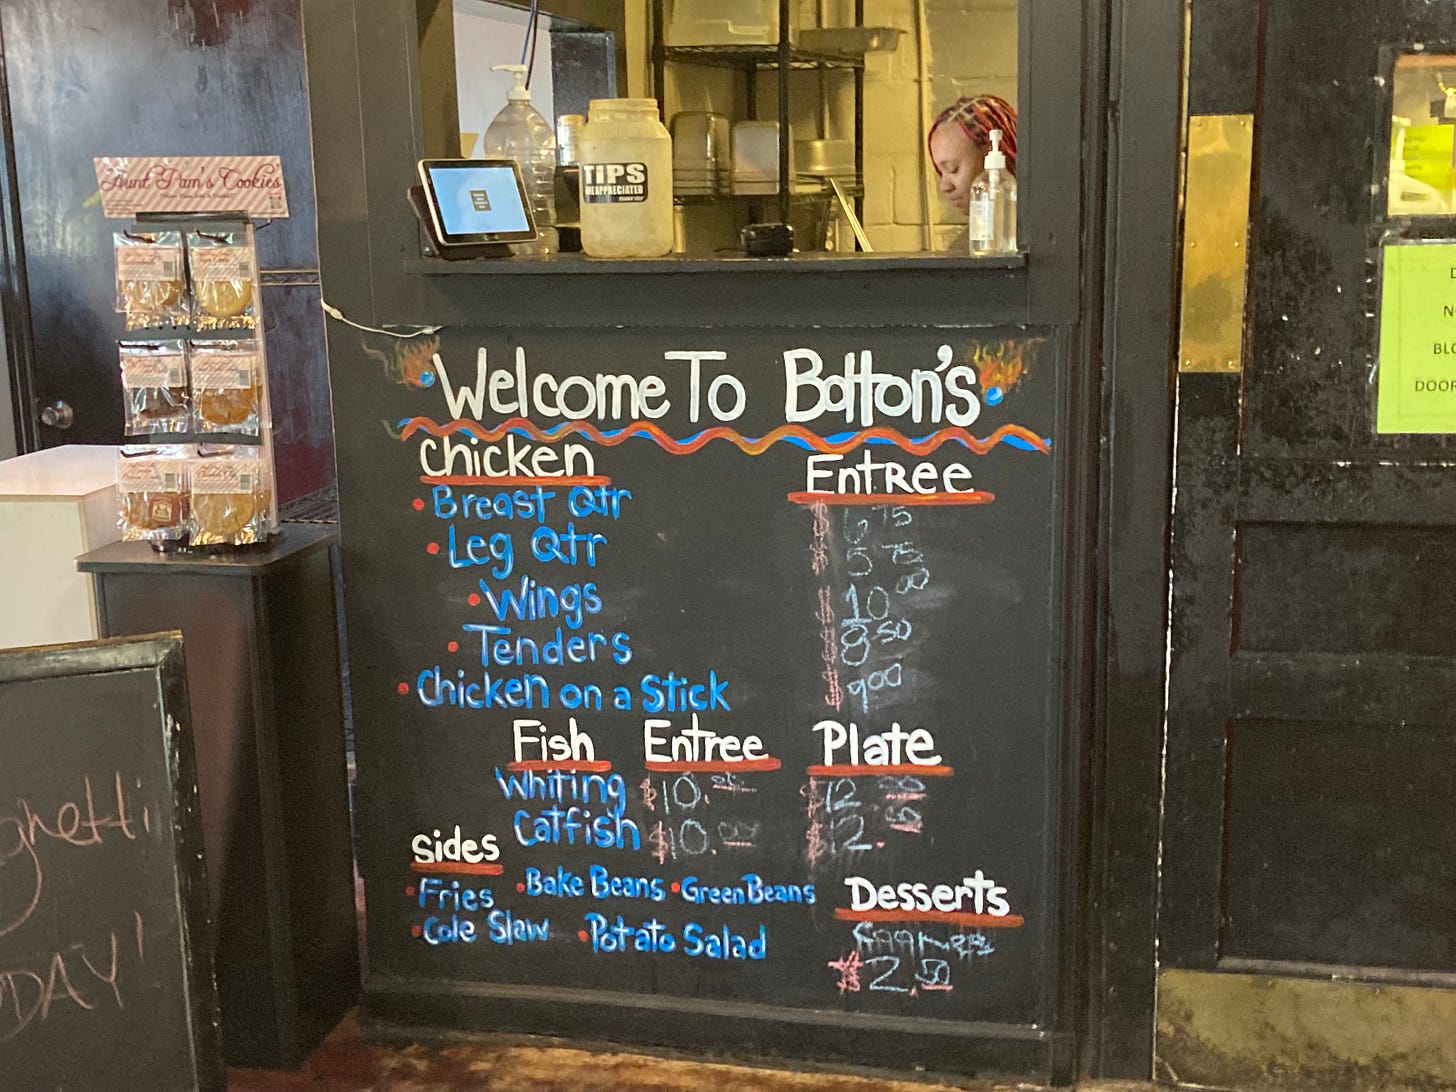 Aunt Pam's Cookies
TIPS
APPRECIATED
Welcome To Botton's
Chicken
Entree
Breast Qtr
$ 6 75
Leg Qtr
$ 5 75
Wings
$ 10 00
Tenders
$ 8 50
Chicken on a Stick
$ 9 00
Fish Entree Plate
Whiting $10. $12
Catfish $10. $12.
Sides
Fries Bake Beans Green Beans
Cole Slaw Potato Salad
Desserts
$2.50
ghetti
DAY!
D
N
BLO
DOOR